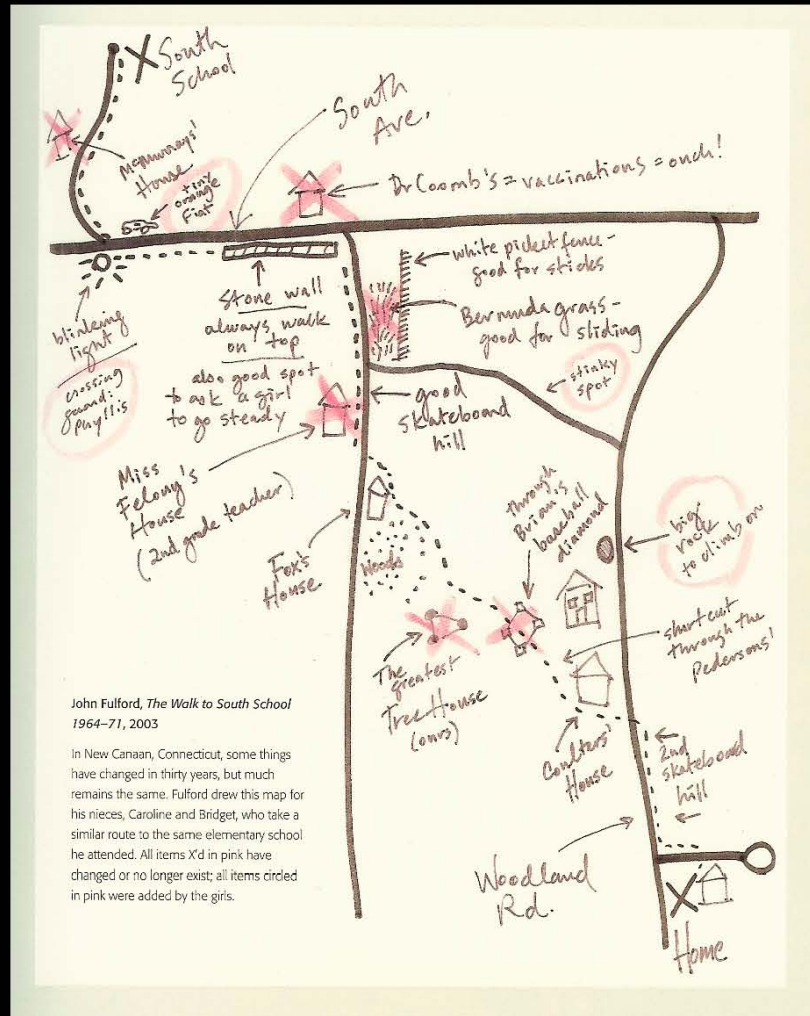 South
School
McMurrays'
House
tiny
orange
Fiat
South
Ave.
Dr Coomb's = vaccinations = ouch!
blinking
light
crossing
guard:
phyllis
Stone wall
always walk
on top
also good spot
to ask a girl
to go steady
white picket fence -
good for sticks
Bermuda grass -
good for sliding
stinky
spot
good
skateboard
hill
Miss
Felony's
House
(2nd grade teacher)
Fox's
House
Woods
through
Brian's
baseball
diamond
big
rock
to climb on
The
greatest
Tree House
(ours)
short cut
through the
Pedersons'
Coulters'
House
2nd
skateboard
hill
Woodland
Rd.
Home
John Fulford, The Walk to South School
1964–71, 2003
In New Canaan, Connecticut, some things
have changed in thirty years, but much
remains the same. Fulford drew this map for
his nieces, Caroline and Bridget, who take a
similar route to the same elementary school
he attended. All items X'd in pink have
changed or no longer exist; all items circled
in pink were added by the girls.